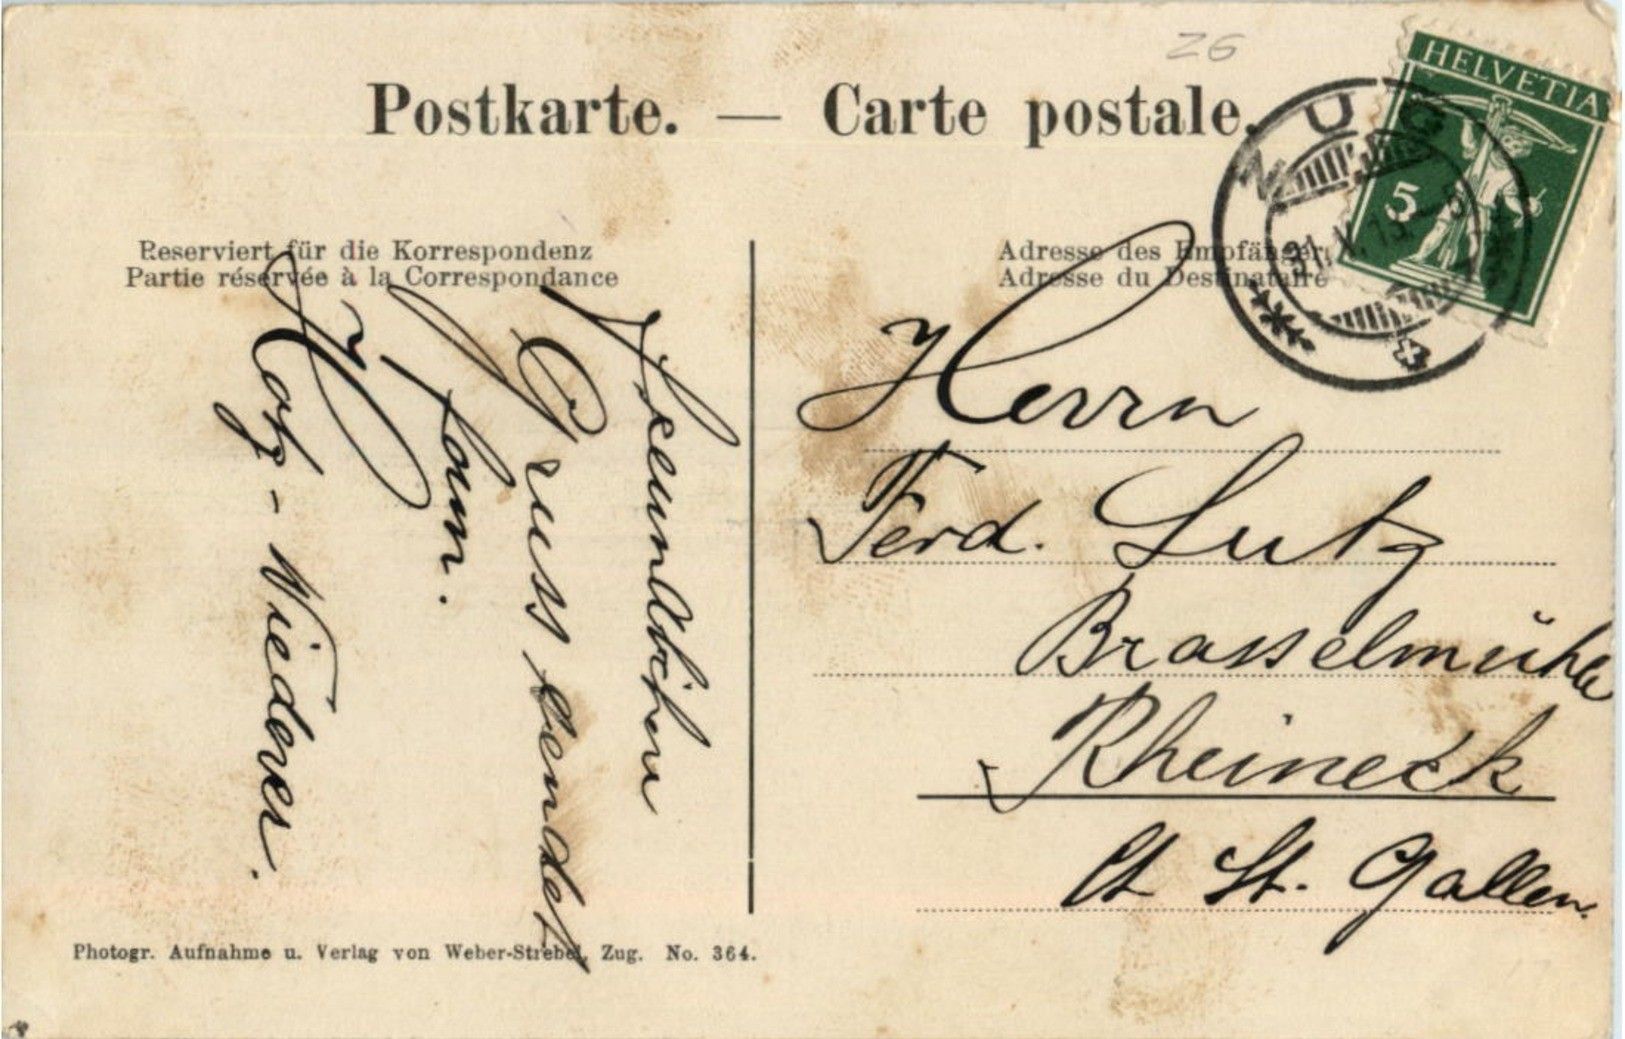 Z6
Postkarte. — Carte postale.
HELVETIA
5
ZUG
Reserviert für die Korrespondenz
Partie réservée à la Correspondance
Adresse des Empfängers
Adresse du Destinataire
Freundlichen
Gruss sendet
Fam.
Hotz-Wiederer.
Herrn
Ferd. Lutz
Brasselmühle
Rheineck
Ct St. Gallen.
Photogr. Aufnahme u. Verlag von Weber-Strebel, Zug. No. 364.